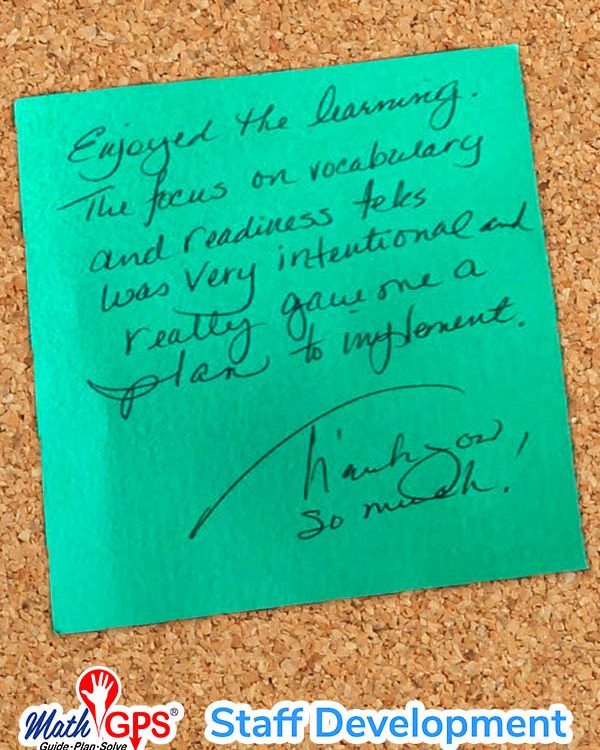 Enjoyed the learning.
The focus on vocabulary
and readiness teks
was very intentional and
really gave one a
plan to implement.
Thank you,
so much!
Math GPS®
Guide-Plan-Solve
Staff Development